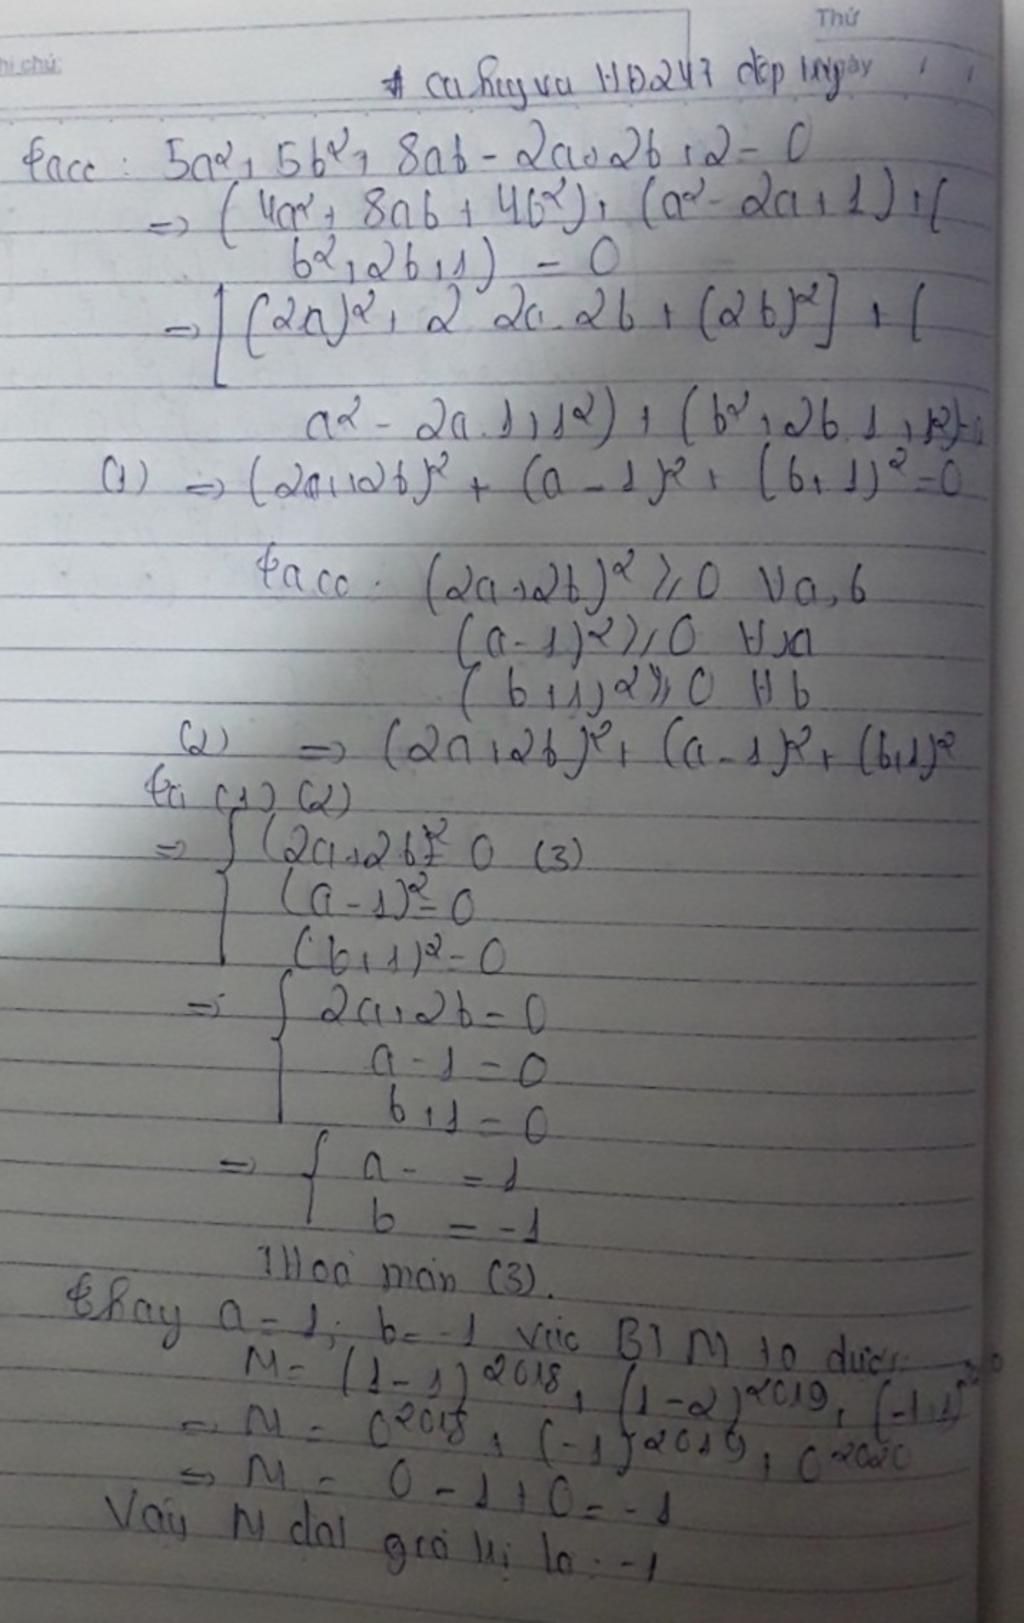 Thứ
hi chú:
Ngày / /
HD247 đẹp
tacc: 5a² + 5b² + 8ab - 2a + 2b + 2 = 0
=> (4a² + 8ab + 4b²) + (a² - 2a + 1) + (
b² + 2b + 1) = 0
=> [(2a)² + 2 2a . 2b + (2b)²] + (
a² - 2a.1 + 1²) + (b² + 2b.1 + 1²) =
(1) => (2a + 2b)² + (a - 1)² + (b + 1)² = 0
tacc: (2a + 2b)² ≥ 0 ∀a,b
(a - 1)² ≥ 0 ∀a
(b + 1)² ≥ 0 ∀b
(2) => (2a + 2b)² + (a - 1)² + (b + 1)²
từ (1) (2)
=> { (2a + 2b)² = 0 (3)
(a - 1)² = 0
(b + 1)² = 0
=> { 2a + 2b = 0
a - 1 = 0
b + 1 = 0
=> { a = 1
b = -1
Thoả mãn (3).
thay a = 1; b = -1 vào BT M ta được:
M = (1 - 1)²⁰¹⁸ + (1 - 2)²⁰¹⁹ + (-1 + 1)²⁰²⁰
=> M = 0²⁰¹⁸ + (-1)²⁰¹⁹ + 0²⁰²⁰
=> M = 0 - 1 + 0 = -1
Vậy M đạt giá trị là: -1